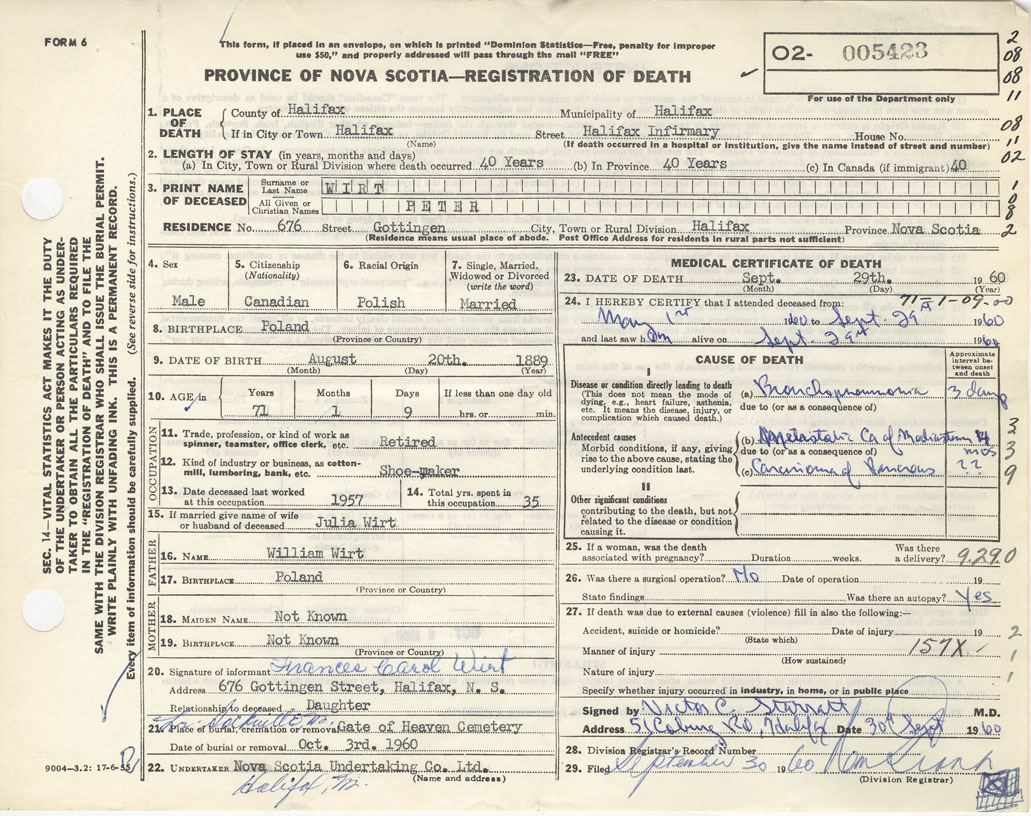 FORM 6
This form, if placed in an envelope, on which is printed "Dominion Statistics—Free, penalty for improper
use $50," and properly addressed will pass through the mail "FREE"
PROVINCE OF NOVA SCOTIA—REGISTRATION OF DEATH
O2- 005423
For use of the Department only
2
08
08
11
08
11
02
1
0
8
2
SEC. 14—VITAL STATISTICS ACT MAKES IT THE DUTY
OF THE UNDERTAKER OR PERSON ACTING AS UNDER-
TAKER TO OBTAIN ALL THE PARTICULARS REQUIRED
IN THE "REGISTRATION OF DEATH" AND TO FILE THE
SAME WITH THE DIVISION REGISTRAR WHO SHALL ISSUE THE BURIAL PERMIT.
WRITE PLAINLY WITH UNFADING INK. THIS IS A PERMANENT RECORD.
Every item of information should be carefully supplied. (See reverse side for instructions.)
1. PLACE OF DEATH
County of Halifax Municipality of Halifax
If in City or Town Halifax Street Halifax Infirmary House No.
(Name) (If death occurred in a hospital or institution, give the name instead of street and number)
2. LENGTH OF STAY (in years, months and days)
(a) In City, Town or Rural Division where death occurred 40 Years (b) In Province 40 Years (c) In Canada (if immigrant) 40
3. PRINT NAME OF DECEASED
Surname or Last Name WIRT
All Given or Christian Names PETER
RESIDENCE No. 676 Street Gottingen City, Town or Rural Division Halifax Province Nova Scotia
(Residence means usual place of abode. Post Office Address for residents in rural parts not sufficient)
4. Sex
Male
5. Citizenship
(Nationality)
Canadian
6. Racial Origin
Polish
7. Single, Married,
Widowed or Divorced
(write the word)
Married
8. BIRTHPLACE Poland
(Province or Country)
9. DATE OF BIRTH August 20th. 1889
(Month) (Day) (Year)
10. AGE in
Years Months Days If less than one day old
71 1 9 hrs. or min.
OCCUPATION
11. Trade, profession, or kind of work as
spinner, teamster, office clerk, etc. Retired
12. Kind of industry or business, as cotton-
mill, lumbering, bank, etc. Shoe-maker
13. Date deceased last worked
at this occupation 1957
14. Total yrs. spent in
this occupation 35
15. If married give name of wife
or husband of deceased Julia Wirt
FATHER
16. NAME William Wirt
17. BIRTHPLACE Poland
(Province or Country)
MOTHER
18. MAIDEN NAME Not Known
19. BIRTHPLACE Not Known
(Province or Country)
20. Signature of informant Frances Carol Wirt
Address 676 Gottingen Street, Halifax, N. S.
Relationship to deceased Daughter
Sackville
21. Place of burial, cremation or removal Gate of Heaven Cemetery
Date of burial or removal Oct. 3rd. 1960
22. UNDERTAKER Nova Scotia Undertaking Co. Ltd.
(Name and address)
Halifax,
9004—3.2: 17-6-55
MEDICAL CERTIFICATE OF DEATH
23. DATE OF DEATH Sept. 29th. 1960
(Month) (Day) (Year)
71-1-09-00
24. I HEREBY CERTIFY that I attended deceased from:
May 1st 1960 to Sept. 29th 1960
and last saw him alive on Sept. 29th 1960
CAUSE OF DEATH
Approximate
interval between
onset
and death
I
Disease or condition directly leading to death
(This does not mean the mode of
dying, e.g., heart failure, asthenia,
etc. It means the disease, injury, or
complication which caused death.)
(a) Bronchopneumonia 3 days
due to (or as a consequence of)
Antecedent causes
Morbid conditions, if any, giving
rise to the above cause, stating the
underlying condition last.
(b) Metastatic Ca of Mediastinum 4 mos
due to (or as a consequence of)
(c) Carcinoma of Pancreas ??
3
3
9
II
Other significant conditions
contributing to the death, but not
related to the disease or condition
causing it.
25. If a woman, was the death
associated with pregnancy? Duration weeks. Was there
a delivery?
9.290
26. Was there a surgical operation? No Date of operation 19
State findings Was there an autopsy? Yes
27. If death was due to external causes (violence) fill in also the following:—
Accident, suicide or homicide? Date of injury 19
(State which)
2
Manner of injury 157X.
(How sustained)
1
Nature of injury
1
Specify whether injury occurred in industry, in home, or in public place
Signed by Victor C. Starratt M.D.
Address 51 Coburg Rd, Halifax Date 30th Sept 1960
28. Division Registrar's Record Number
29. Filed September 30 1960
(Division Registrar)